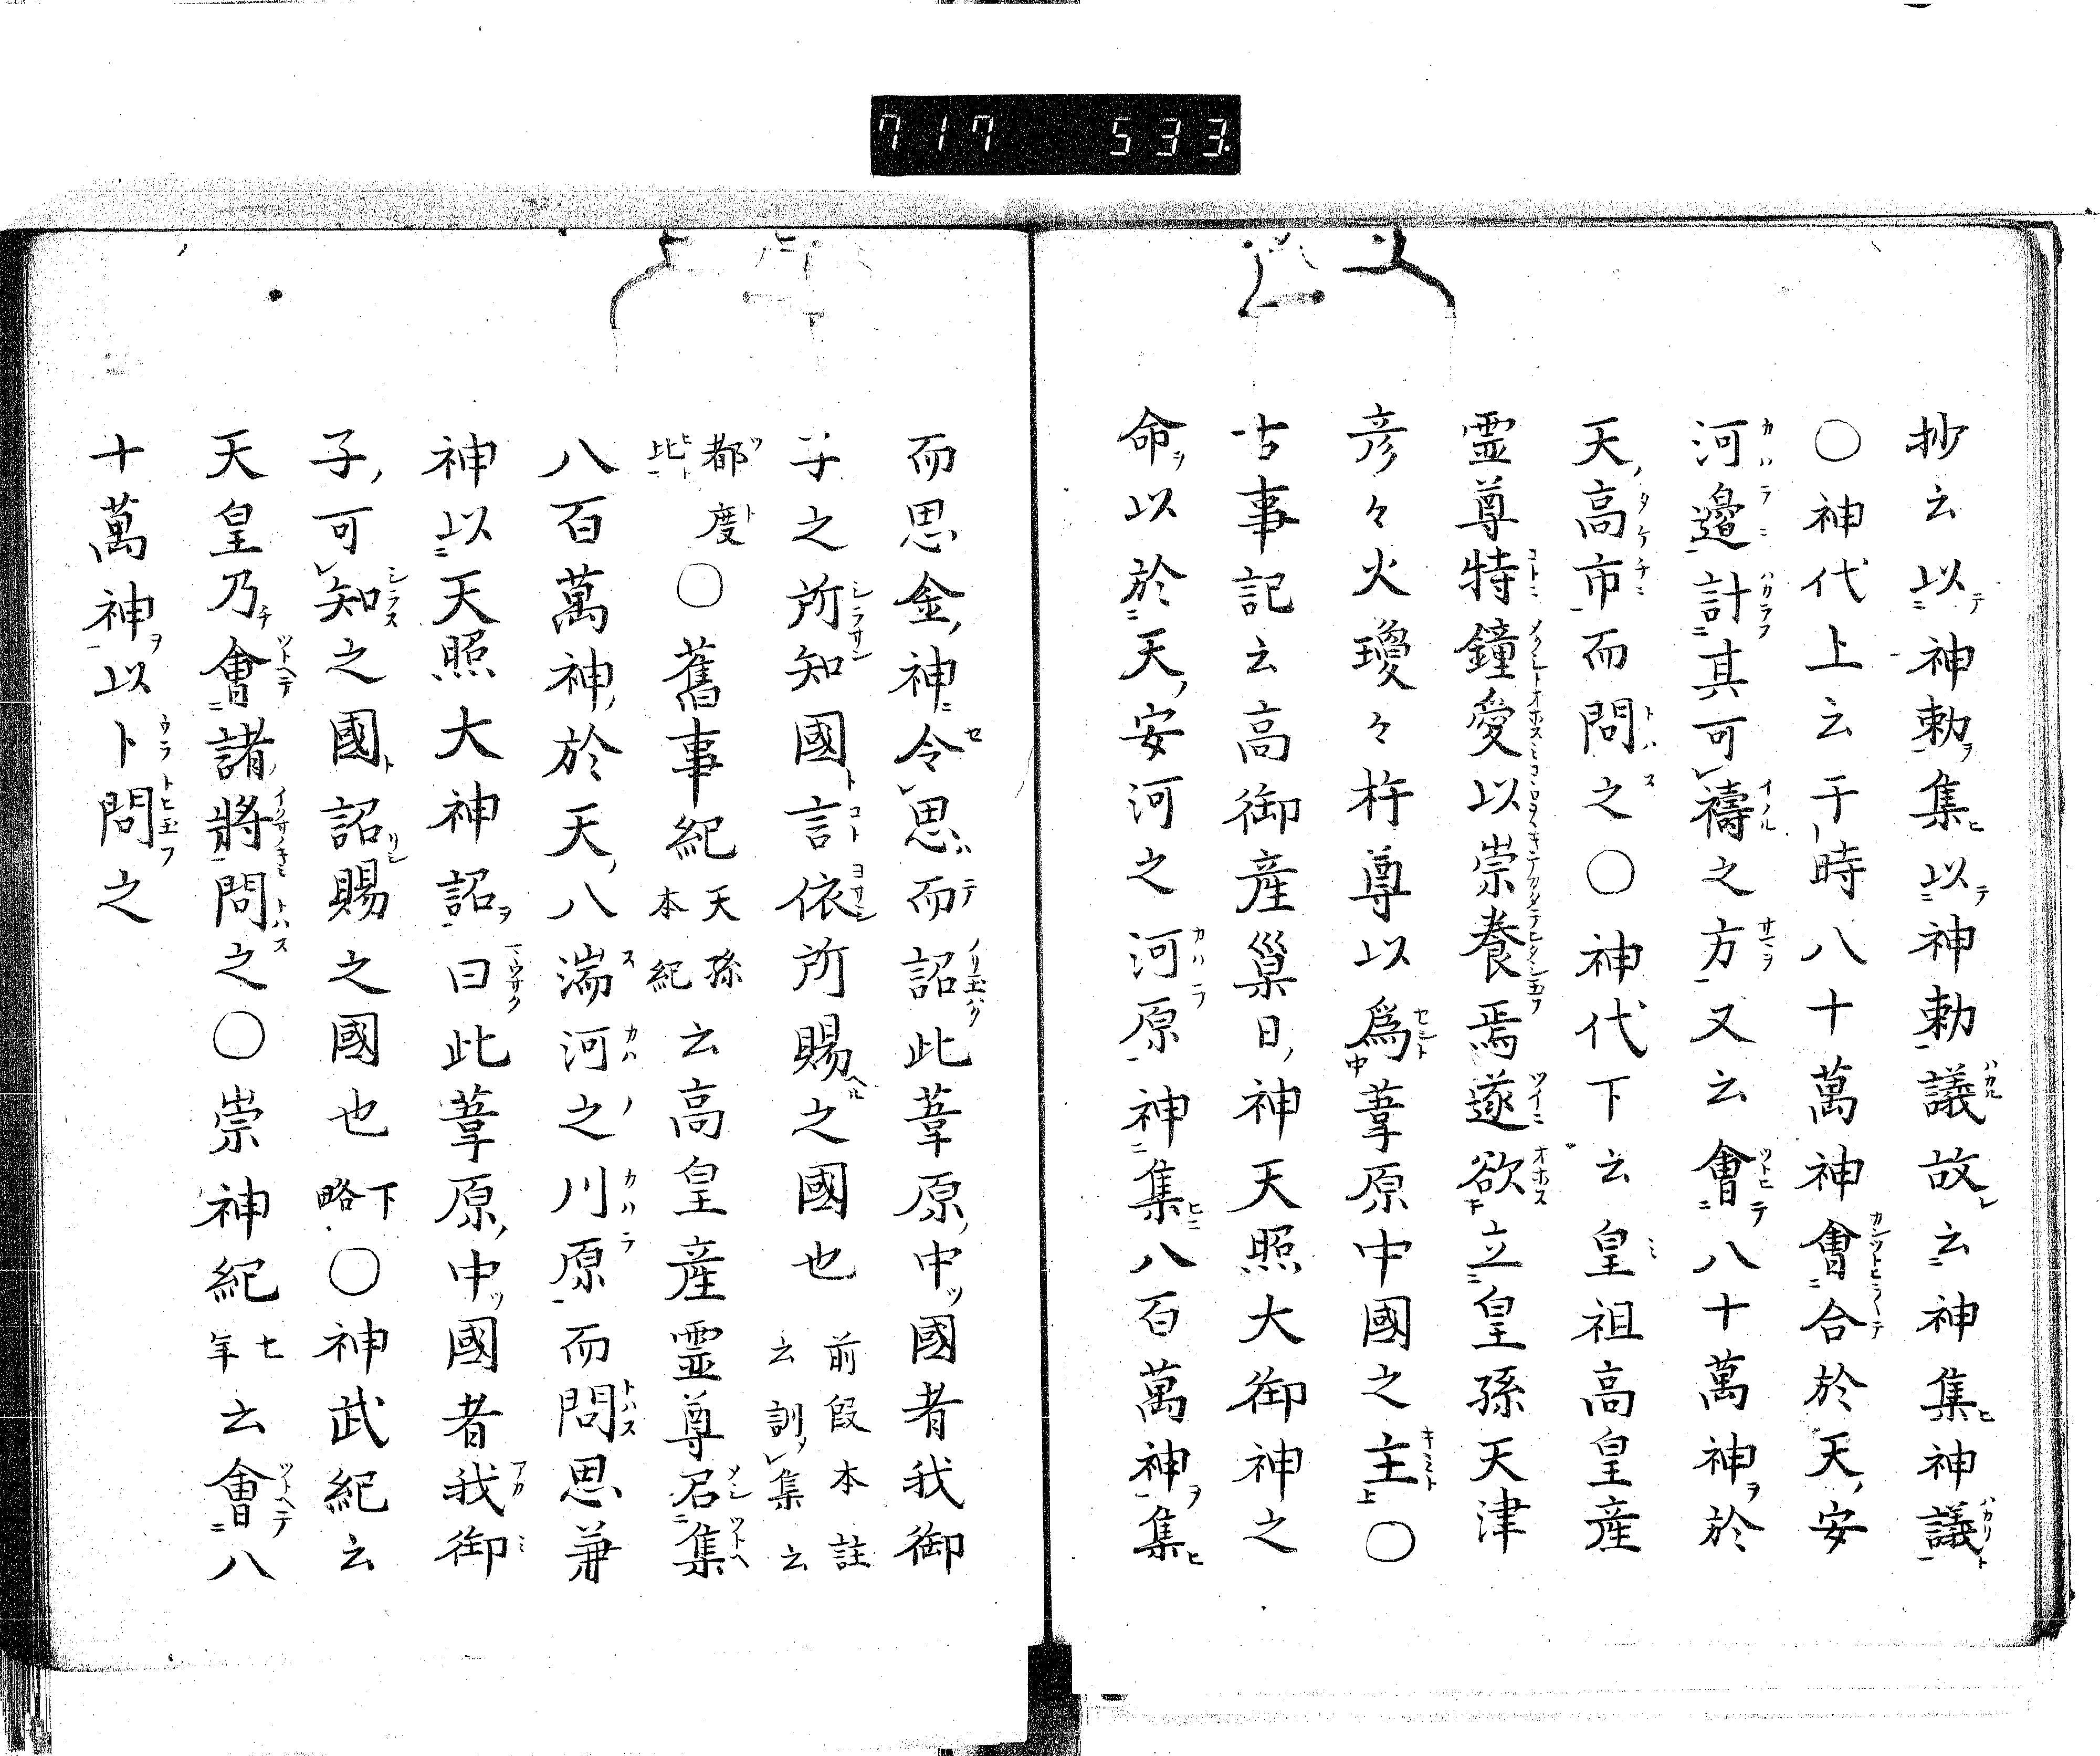 717 533
抄云以神勅集以神勅議故云神集神議
〇神代上云于時八十萬神會合於天安
河邊計其可禱之方又云會八十萬神於
天高市而問之〇神代下云皇祖高皇産
霊尊特鐘愛以崇養焉遂欲立皇孫天津
彦々火瓊々杵尊以爲葦原中國之主〇
古事記云高御産巣日神天照大御神之
命以於天安河之河原神集八百萬神集
而思金神令思而詔此葦原中國者我御
子之所知國言依所賜之國也前段本註云訓集云
都度比〇舊事紀天孫本紀云高皇産霊尊召集
八百萬神於天八湍河之川原而問思兼
神以天照大神詔曰此葦原中國者我御
子可知之國詔賜之國也下略〇神武紀云
天皇乃會諸將問之〇崇神紀七年云會八
十萬神以卜問之